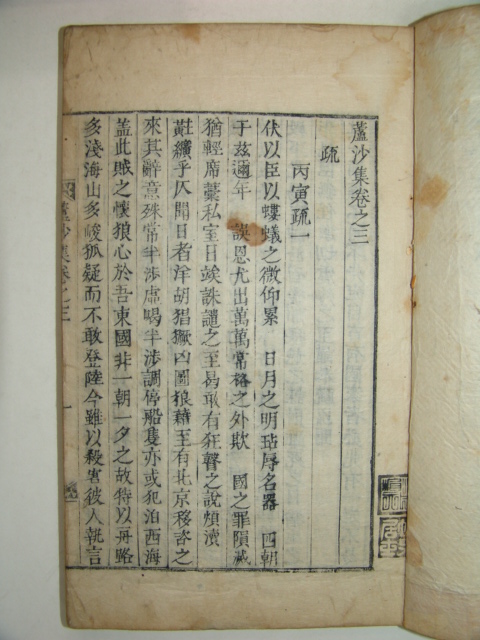 蘆沙集卷之三
疏
丙寅疏一
伏以臣以螻蟻之微仰累 日月之明玷辱名器 四朝
于兹邇年 誤恩尤出萬萬常格之外欺 國之罪隕滅
猶輕席藁私室日竢誅譴之至曷敢有狂瞽之說煩瀆
黈纊乎仄聞日者洋胡猖獗凶圖狼藉至有北京移咨之
來其辭意殊常半涉虛喝半涉調停船隻亦或犯泊西海
盖此賊之懷狼心於吾東國非一朝一夕之故特以舟路
多淺海山多峻狐疑而不敢登陸今雖以殺害彼人執言
蘆沙集卷之三
一